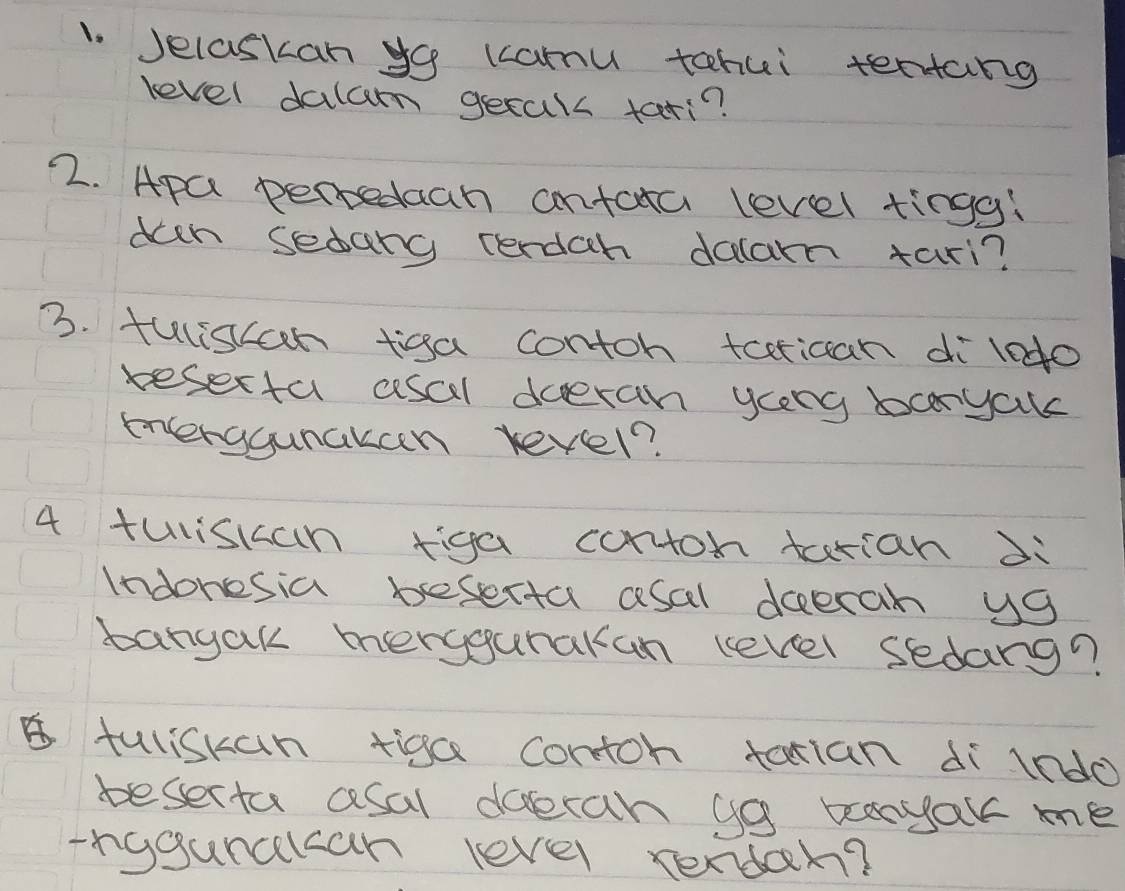 1. Jelaskan yg kamu tahui tentang
level dalam gerak tari?
2. Apa perbedaan antara level tinggi
dan sedang rendah dalam tari?
3. tuliskan tiga contoh tariaan di Indo
beserta asal daerah yang banyak
menggunakan level?
4 tuliskan tiga contoh tarian di
Indonesia beserta asal daerah yg
banyak menggunakan level sedang?
5 tuliskan tiga contoh tarian di Indo
beserta asal daerah yg banyak me
-nggunakan level rendah?